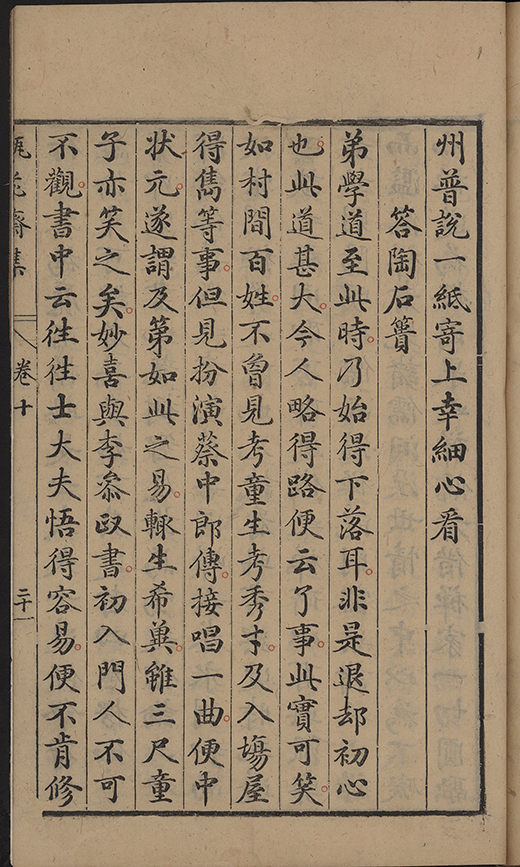 州普說一紙寄上幸細心看
答陶石簣
弟學道至此時乃始得下落耳非是退却初心
也此道甚大今人略得路便云了事此實可笑
如村間百姓不曾見考童生考秀才及入場屋
得雋等事但見扮演蔡中郎傳接唱一曲便中
狀元遂謂及第如此之易輙生希兾雖三尺童
子亦笑之矣妙喜與李叅政書初入門人不可
不觀書中云徃徃士大夫悟得容易便不肯修
瓶花齋集
卷十
二十一